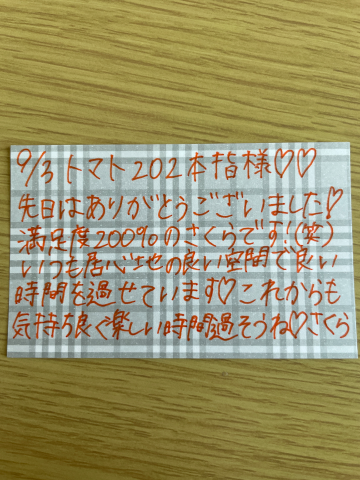 9/3 トマト202本指様♡♡
先日はありがとうございました♡
満足度200%のさくらです!(笑)
いつも居心地の良い空間で良い
時間を過せています♡これからも
気持ち良く楽しい時間過そうね♡さくら